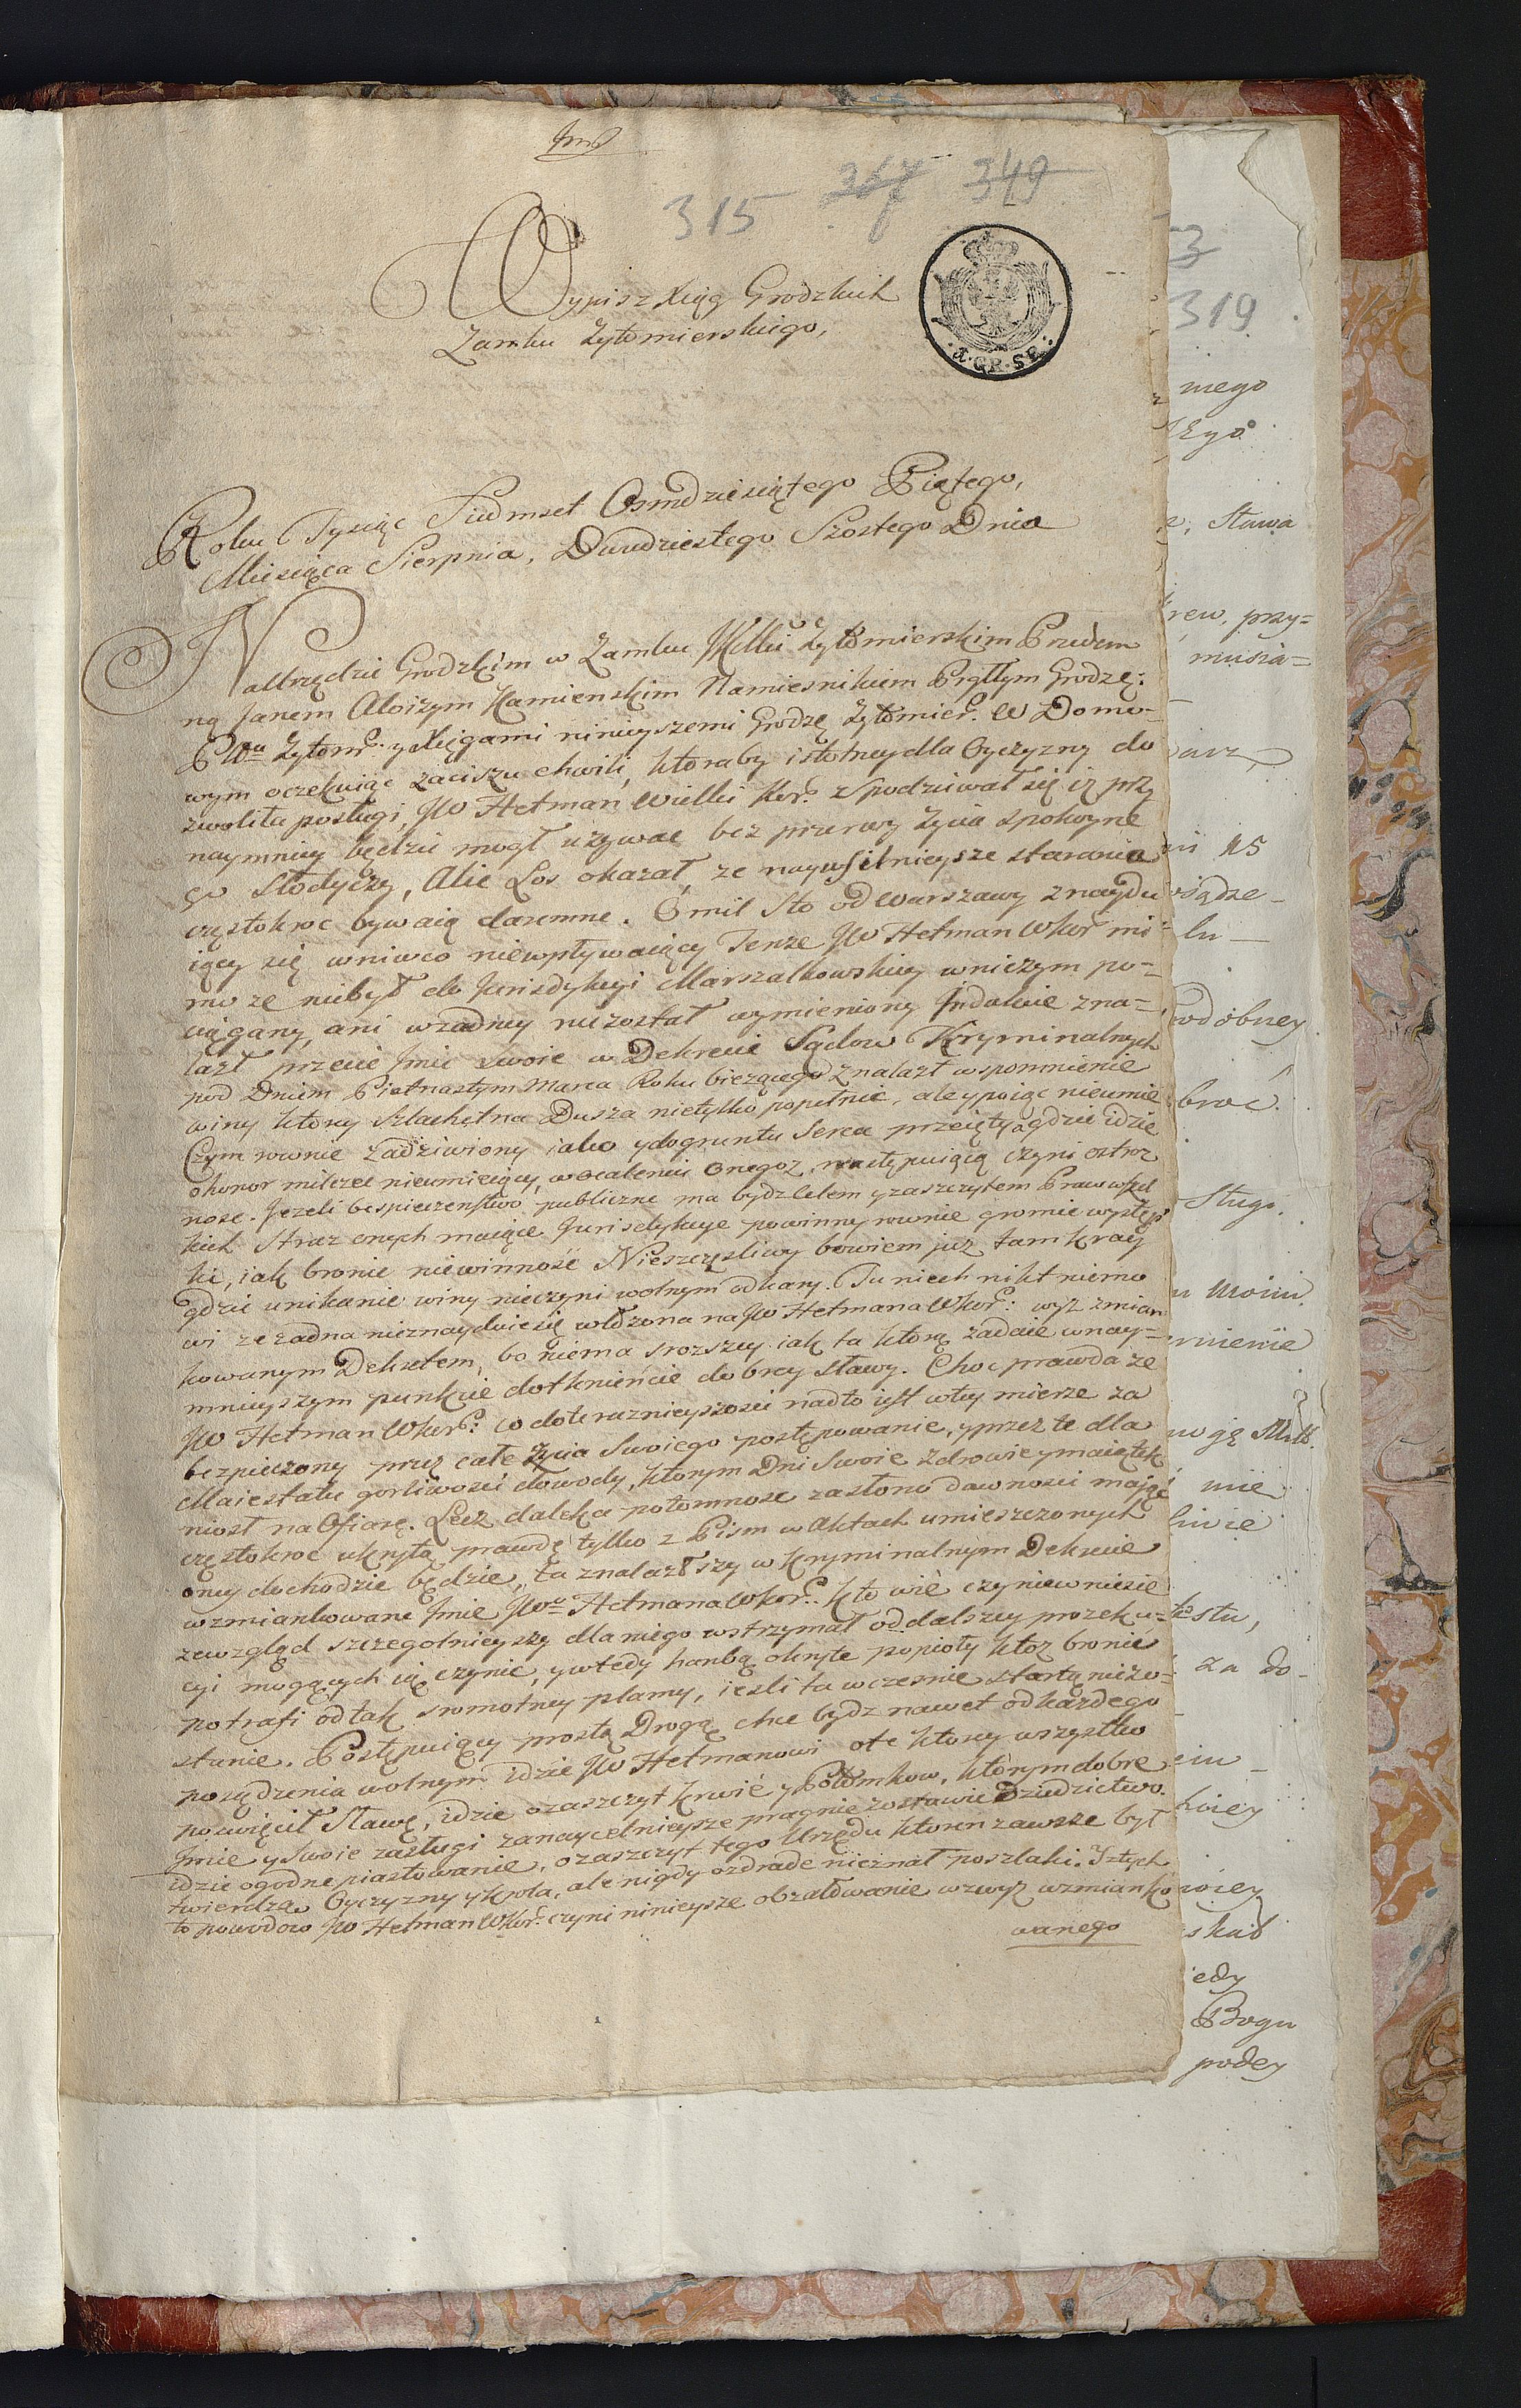 315 317 349
Wypis z Xiąg Grodzkich
Zamku Żytomierskiego,
A. GR. SR.
Roku Tysiąc Siedmset Osmdziesiątego Piątego,
Miesiąca Sierpnia, Dwudziestego Szostego Dnia
Na Urzędzie Grodzkim w Zamku JKMci Żytomierskim Przedem
ną Janem Aloizym Kamienskim Namiesnikiem Grodzę:
Żytomr. y Xięgami ninieyszemi Grodzę Żytomier. W Domo-
wym oczekuiąc zaciszu chwili, ktoraby istotney dla Oyczyzny do
zwoliła posługi, JW Hetman Wielki Kor. spodziewał się iż przy
naymniey będzie mogł używac bez przerwy życia spokoyne
go słodyczy, Alic Los okazał, ze nayusilnieysze starania
częstokroc bywaią daremne. O mil Sto od Warszawy znaydu
iący się w niwco niewpływaiący Tenże JW Hetman WKor mi-
mo ze niebył do Jurisdykcyi Marszałkowskiey wniczym po-
ciągany, ani wżadney niezostał wymieniony Indukcie zna-
lazł przecie Jmie swoie w Dekrecie Sądow Kryminalnych
pod Dniem Pietnastym Marca Roku bieżącego znalazł wspomnienie
winy ktorey Szlachetna Dusza nietylko popełnic, ale y poiąc nieumie
Czym rownie zadziwiony iako y do gruntu Serca przeięty, a gdzie idzie
o honor milczec nieumieiący, w ocaleniu onegoż, następuiącą czyni ostroż
nosc. Jezeli bespieczenstwo publiczne ma bydz celem y zaszczytem Praw wszel
kich Straz onych maiące Jurisdykcye powinny rownie gromic występ
ki, iak bronic niewinność Nieszczęsliwy bowiem juz tam kray
gdzie unikanie winy nieczyni wolnym od kary. Tu niech nikt niemo
wi ze żadna nieznayduie się włożona na JW Hetmana WKor: wyż zmian
kowanym Dekretem, bo niema srozszey iak ta ktorą zadaie wnay-
mnieyszym punkcie dotknięcie dobrey sławy. Choc prawda że
JW Hetman WKor: co do teraznieyszosci nadto iest wtey mierze za
bezpieczony przez całe Życia Swoiego postępowanie, y przez te dla
Maiestatu gorliwości dowody, ktorym Dni Swoie Zdrowie y maiątek
niosł na Ofiarę. Lecz daleka potomnosc zasłoną dawnosci mając
częstokroc ukrytą prawdę tylko z Pism w Aktach umieszczonych
oney dochodzic będzie, ta znalazłszy w Kryminalnym Dekrecie
wzmiankowane Jmie JWo Hetmana WKor. kto wie czy niewniesie
ze wzgląd szczegolnieyszy dla niego wstrzymał od dalszey prozeku-
cyi mogących się czynic, y wtedy hanbą okryte popioły ktoż bronic
potrafi od tak sromotney plamy, iesli ta wczesnie startą niezo-
stanie. Postępuiący prostą Drogą chce bydz nawet od kazdego
posądzenia wolnym idzie JW Hetmanowi o te ktorey wszystko
poswięcił Sławę, idzie o zaszczyt krwié y Potomkow, ktorym dobre
Jmie y Swoie zasługi za naycelnieysze pragnie zostawic Dziedzictwo.
idzie o godne piastowanie, o zaszczyt tego Urzędu ktoren zawsze był
twierdzą Oyczyzny y krola, ale nigdy o zdrade nieznał poszlaki. Z tych
to powodow JW Hetman WKor: czyni ninieysze obżałowanie wzwyż wzmianko
wanego
3
319
niego
Sława
krew, przy=
musia=
Podobney
broć
Sługo.
Moim
mię
za do-
Bogu
podey